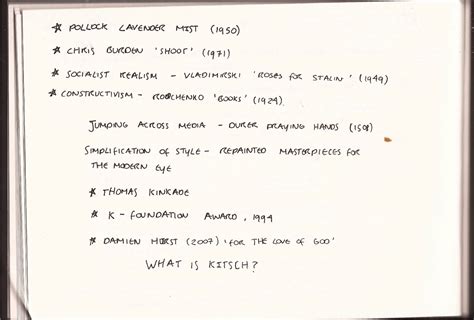 * POLLOCK LAVENDER MIST (1950)
* CHRIS BURDEN 'SHOOT' (1971)
* SOCIALIST REALISM - VLADIMIRSKI 'ROSES FOR STALIN' (1949)
* CONSTRUCTIVISM - RODCHENKO 'BOOKS' (1924)
JUMPING ACROSS MEDIA - DURER PRAYING HANDS (1508)
SIMPLIFICATION OF STYLE - REPAINTED MASTERPIECES FOR
THE MODERN EYE
* THOMAS KINKADE
* K - FOUNDATION AWARD, 1994
* DAMIEN HIRST (2007) 'FOR THE LOVE OF GOD'
WHAT IS KITSCH?